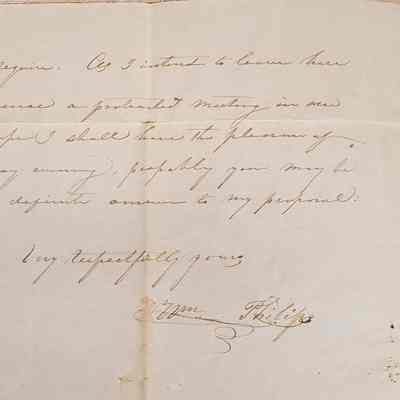 require. As I intend to leave here
a protracted meeting in
I shall have the pleasure of
evening, prophbly you may be
definite answer to my proposal:
Very respectfully yours
Wm Philips